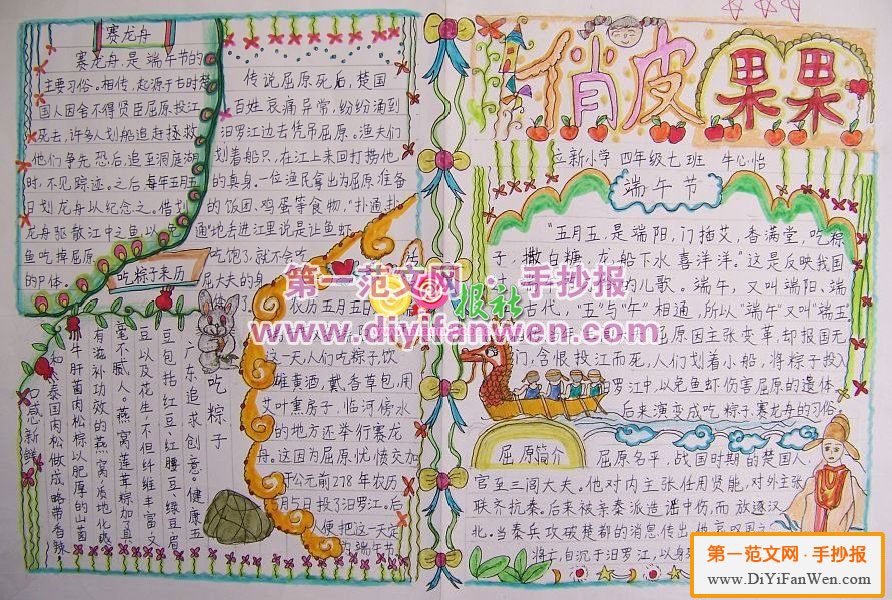 赛龙舟
赛龙舟是端午节的
主要习俗。相传,起源于古时楚
国人因舍不得贤臣屈原投江
死去,许多人划船追赶拯救。
他们争先恐后,追至洞庭湖
时,不见踪迹。之后每年五月五
日划龙舟以纪念之。借划
龙舟驱散江中之鱼,以免
鱼吃掉屈原
的尸体。
传说屈原死后,楚国
百姓哀痛异常,纷纷涌到
汨罗江边去凭吊屈原。渔夫们
划着船只,在江上来回打捞他
的真身。一位渔民拿出为屈原准备
的饭团、鸡蛋等食物,“扑通扑
通”地丢进江里说是让鱼虾
吃饱了,就不会吃
屈大夫的身
吃粽子来历
农历五月五日
这一天,人们吃粽子饮
雄黄酒,戴香草包,用
艾叶熏房子,临河傍水
的地方还举行赛龙
舟。这因为屈原忧愤交加
于公元前278年农历
月5日投了汨罗江。后
便把这一天定
为端午节
吃粽子
广东追求创意。健康五
豆包括红豆、红腰豆、绿豆、眉
豆以及花生,不但纤维丰富,又
毫不腻人。燕窝莲蓉粽加了具
有滋补功效的燕窝,质地化
牛肝菌肉松粽以肥厚的山菌
和泰国肉松做成,略带香辣,
口感新鲜
俏皮果果
立新小学 四年级七班 牛心怡
端午节
“五月五,是端阳,门插艾,香满堂,吃粽
子,撒白糖,龙船下水喜洋洋。”这是反映我国
的儿歌。端午,又叫端阳、端
古代,“五”与“午”相通,所以“端午”又叫“端五”
屈原因主张变革,却报国无
门,含恨投江而死,人们划着小船,将粽子投入
汨罗江中,以免鱼虾伤害屈原的遗体。
后来演变成吃粽子、赛龙舟的习俗。
屈原简介
屈原名平,战国时期的楚国人,
官至三闾大夫。他对内主张任用贤能,对外主张
联齐抗秦。后来被亲秦派造谣中伤,而放逐汉
北。当秦兵攻破楚都的消息传出,他哀叹国之
将亡,自沉于汨罗江,以身
第一范文网·手抄报
报社
www.diyifanwen.com
第一范文网·手抄报
www.DiYiFanWen.com